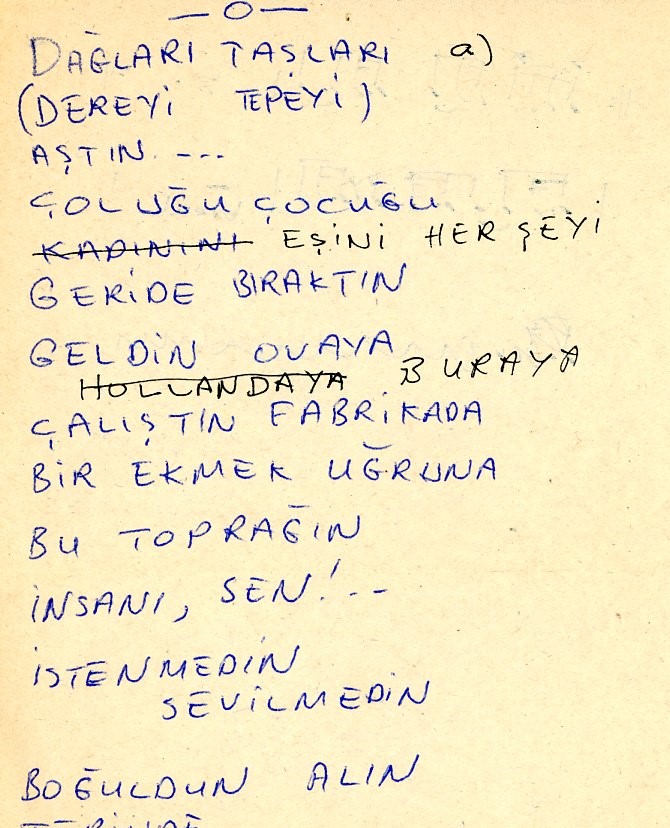 — O —
DAĞLARI TAŞLARI a)
(DEREYİ TEPEYİ)
AŞTIN. ---
ÇOLUĞU ÇOCUĞU
KADININI EŞİNİ HER ŞEYİ
GERİDE BIRAKTIN
GELDİN OVAYA
HOLLANDAYA BURAYA
ÇALIŞTIN FABRİKADA
BİR EKMEK UĞRUNA
BU TOPRAĞIN
İNSANI, SEN!--
İSTENMEDİN
SEVİLMEDİN
BOĞULDUN ALIN